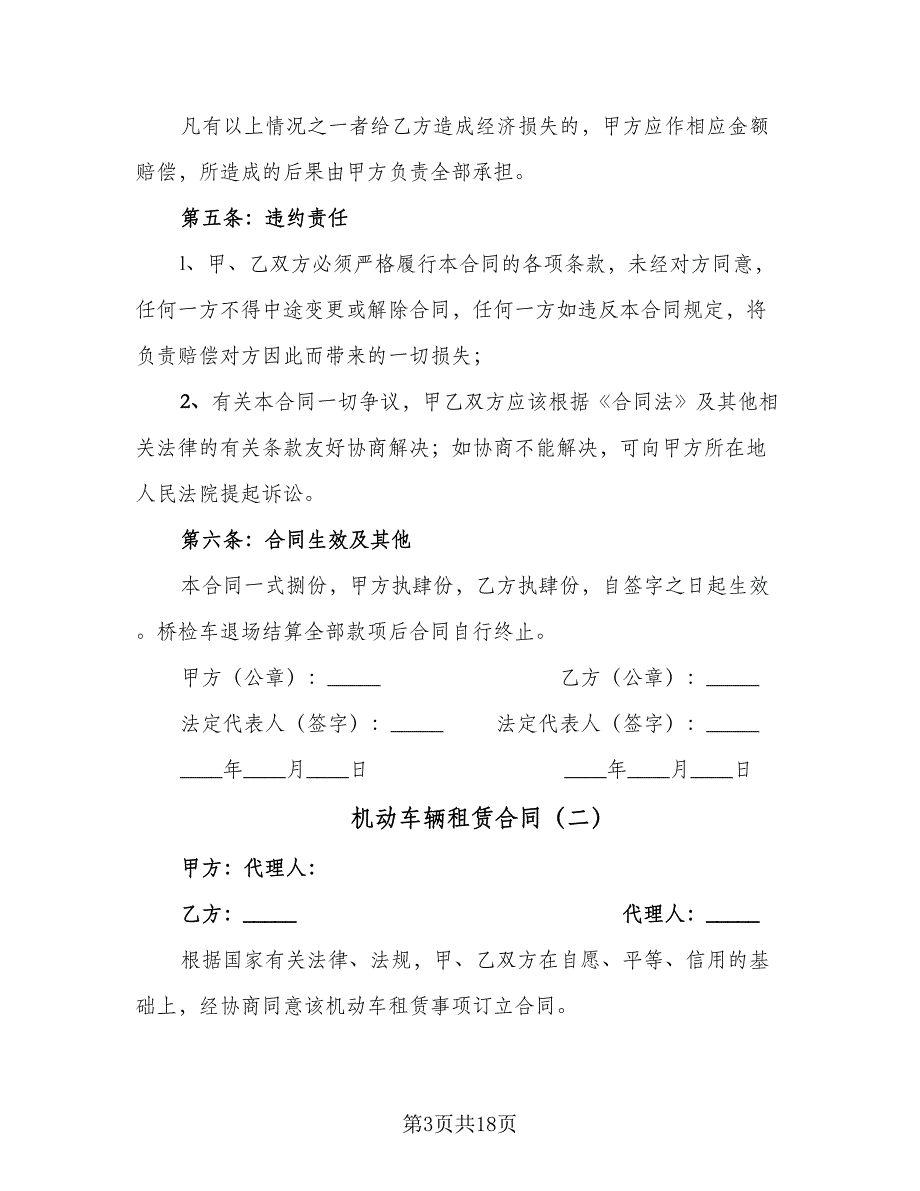 凡有以上情况之一者给乙方造成经济损失的，甲方应作相应金额
赔偿，所造成的后果由甲方负责全部承担。
第五条：违约责任
1、甲、乙双方必须严格履行本合同的各项条款，未经对方同意，
任何一方不得中途变更或解除合同，任何一方如违反本合同规定，将
负责赔偿对方因此而带来的一切损失；
2、有关本合同一切争议，甲乙双方应该根据《合同法》及其他相
关法律的有关条款友好协商解决；如协商不能解决，可向甲方所在地
人民法院提起诉讼。
第六条：合同生效及其他
本合同一式捌份，甲方执肆份，乙方执肆份，自签字之日起生效
。桥检车退场结算全部款项后合同自行终止。
甲方（公章）：_____ 乙方（公章）：_____
法定代表人（签字）：_____ 法定代表人（签字）：_____
____年____月____日 ____年____月____日
机动车辆租赁合同（二）
甲方：代理人：
乙方：_____ 代理人：_____
根据国家有关法律、法规，甲、乙双方在自愿、平等、信用的基
础上，经协商同意该机动车租赁事项订立合同。
第3页共18页